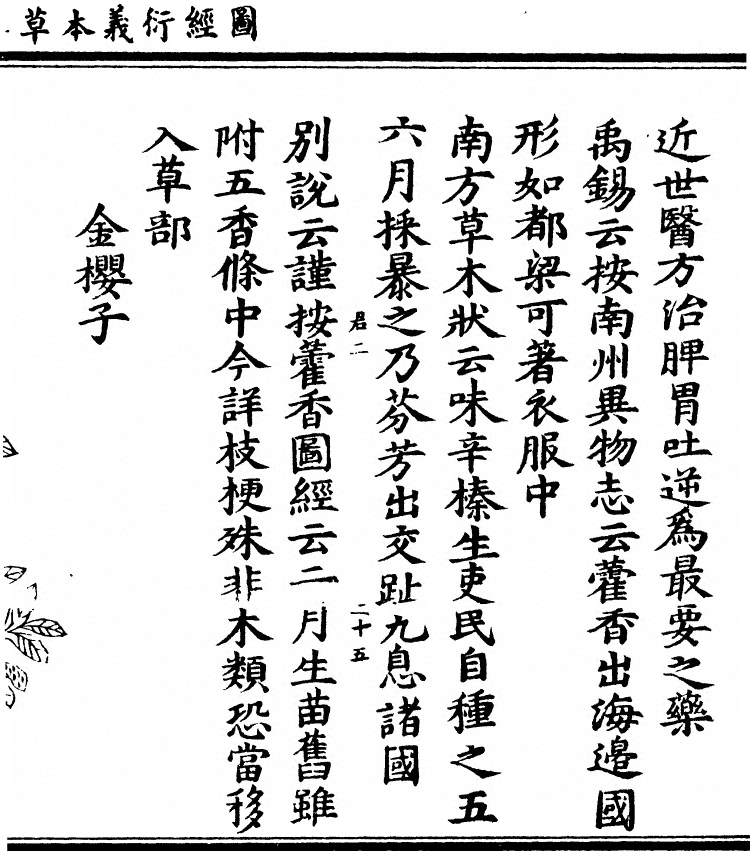 圖經衍義本草
近世醫方治脾胃吐逆爲最要之藥
禹錫云按南州異物志云藿香出海邉國
形如都梁可著衣服中
南方草木狀云味辛榛生吏民自種之五
六月採暴之乃芬芳出交趾九息諸國
君二
二十五
別說云謹按藿香圖經云二月生苗舊雖
附五香條中今詳枝梗殊非木類恐當移
入草部
金櫻子